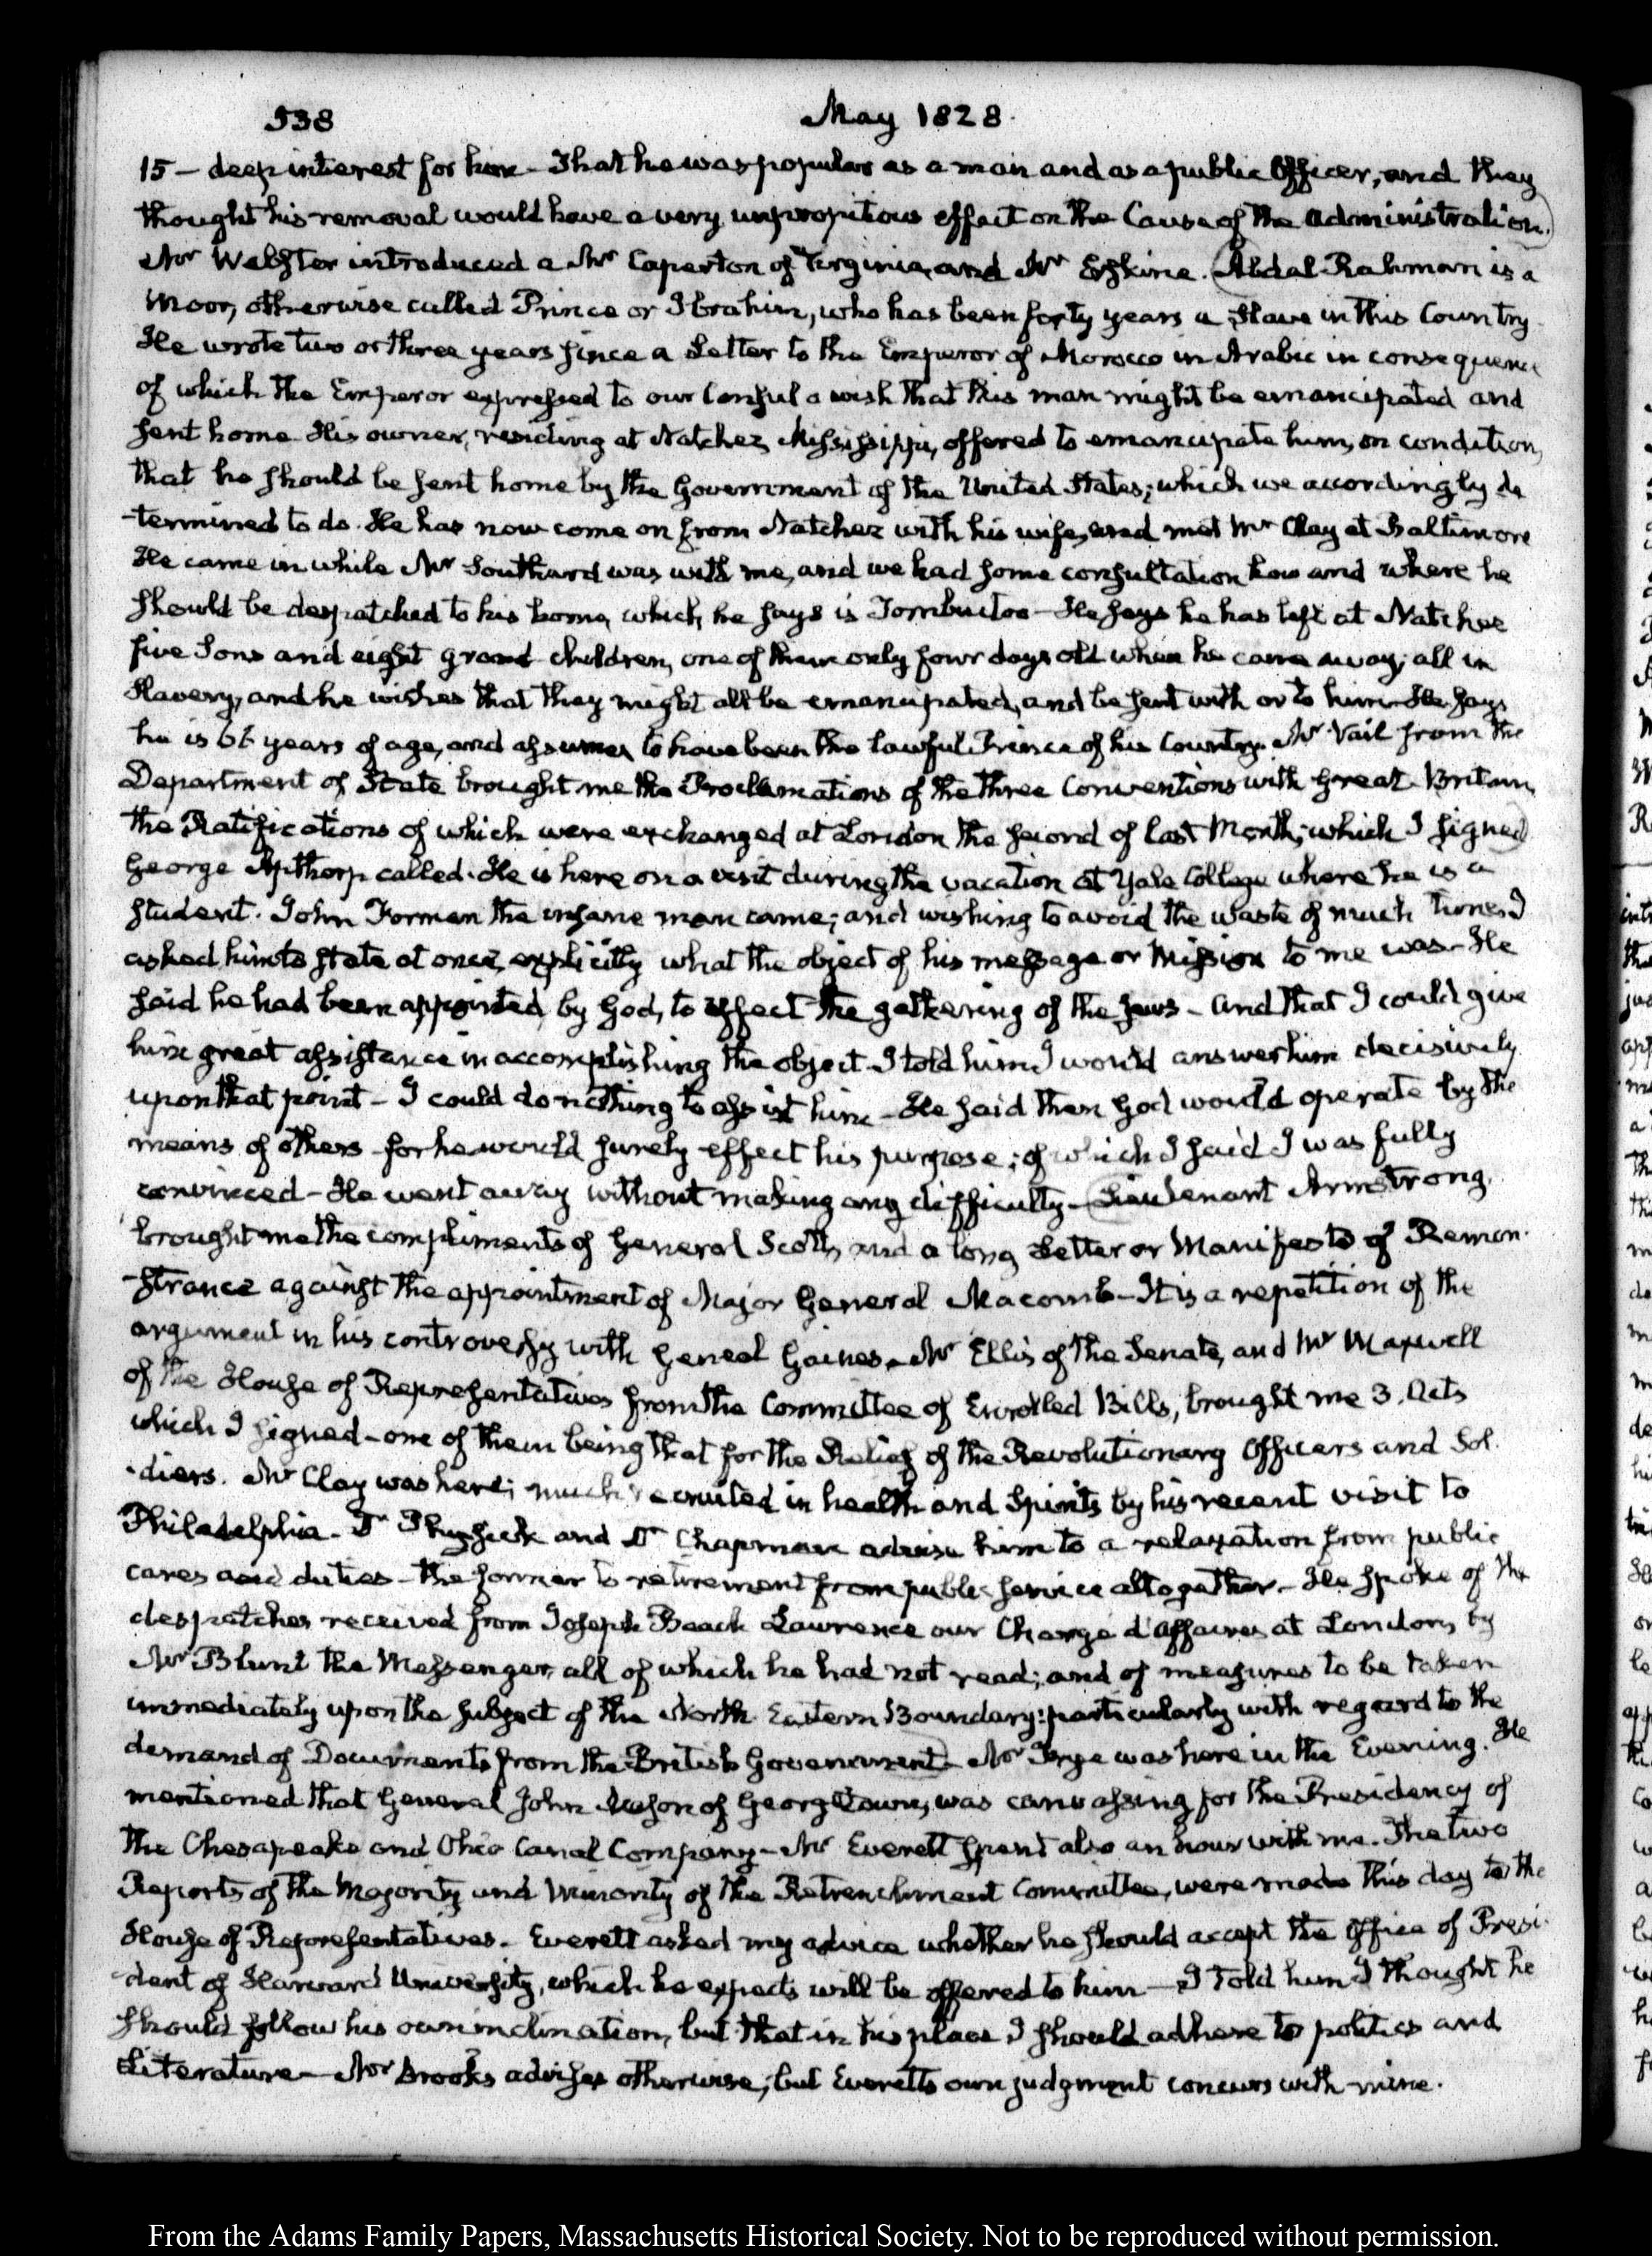 538 May 1828.
15 – deep interest for him – That he was popular as a man and as a public Officer, and they
thought his removal would have a very unpropitious effect on the Cause of the administration.
Mr Webster introduced a Mr Caperton of Virginia, and Mr Erskine. Abdal Rahman is a
Moor, otherwise called Prince or Ibrahim, who has been forty years a Slave in this Country.
He wrote two or three years since a Letter to the Emperor of Morocco in Arabic in consequence
of which the Emperor expressed to our Consul a wish that this man might be emancipated and
sent home. His owner, residing at Natchez, Mississippi, offered to emancipate him, on condition,
that he should be sent home by the Government of the United States; which we accordingly de
-termined to do. He has now come on from Natchez with his wife, and met Mr Clay at Baltimore
He came in while Mr Southard was with me, and we had some consultation how and where he
should be despatched to his home, which, he says is Tombuctoo – He says he has left at Natchez
five Sons and eight grand-children, one of them only four days old when he came away; all in
Slavery, and he wishes that they might all be emancipated, and be sent with or to him – He says
he is 66 years of age, and assumes to have been the lawful Prince of his Country. Mr Vail from the
Department of State brought me the Proclamations of the three Conventions with Great Britain,
the Ratifications of which were exchanged at London the second of last Month; which I signed
George Apthorp called. He is here on a visit during the vacation at Yale College where he is a
Student. John Forman the insane man came; and wishing to avoid the waste of much time, I
asked him to state at once, explicitly what the object of his message or Mission to me was – He
said he had been appointed, by God, to effect the gathering of the Jews – and that I could give
him great assistance in accomplishing the object. I told him I would answer him decisively
upon that point – I could do nothing to assist him – He said then God would operate by the
means of others – for he would surely effect his purpose; of which I said I was fully
convinced – He went away without making any difficulty – Lieutenant Armstrong,
brought me the compliments of General Scott, and a long Letter or Manifesto of Remon-
-strance against the appointment of Major General Macomb – It is a repetition of the
argument in his controversy with General Gaines – Mr Ellis of the Senate, and Mr Maxwell
of the House of Representatives from the Committee of Enrolled Bills, brought me 3. Acts
which I signed – one of them being that for the Relief of the Revolutionary Officers and Sol-
-diers. Mr Clay was here; much recruited in health and Spirits by his recent visit to
Philadelphia – Dr Physick and Dr Chapman advise him to a relaxation from public
cares and duties – the former to retirement from public service altogether – He spoke of the
despatches received from Joseph Beach Lawrence our Chargé d'Affaires at London, by
Mr Blunt the Messenger, all of which he had not read; and of measures to be taken
immediately upon the subject of the North Eastern Boundary: particularly with regard to the
demand of Documents from the British Government – Mr Frye was here in the Evening. He
mentioned that General John Mason of Georgetown, was canvassing for the Presidency of
the Chesapeake and Ohio Canal Company – Mr Everett spent also an hour with me. The two
Reports of the Majority and Minority of the Retrenchment Committee, were made this day to the
House of Representatives – Everett asked my advice whether he should accept the Office of Presi-
-dent of Harvard University, which he expects will be offered to him – I told him I thought he
should follow his own inclination, but that in his place I should adhere to politics and
Literature – Mr Brooks advises otherwise; but Everetts own judgment concurs with mine.
From the Adams Family Papers, Massachusetts Historical Society. Not to be reproduced without permission.